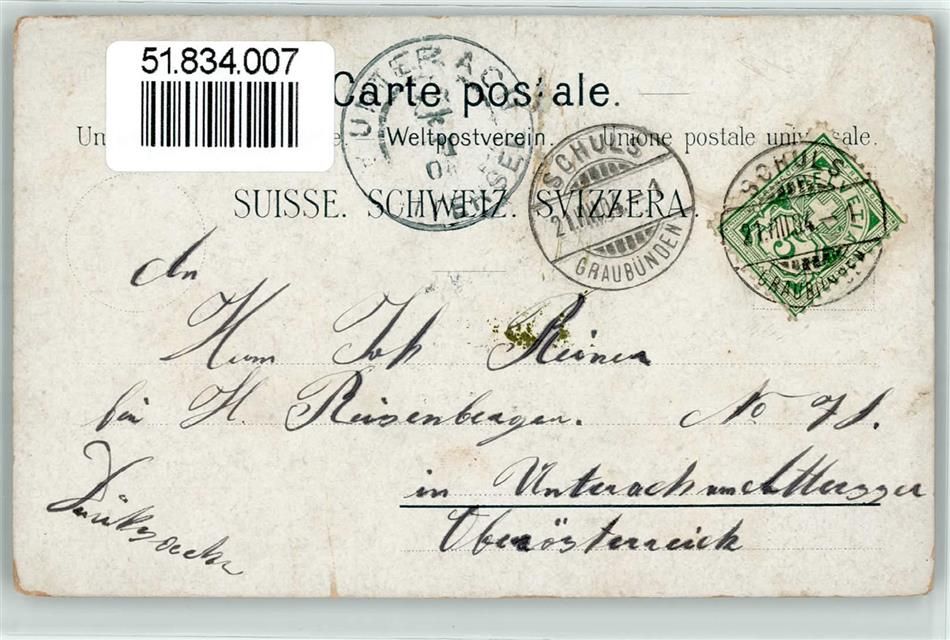 51.834.007
Carte postale.
Weltpostverein. Unione postale universale.
SUISSE. SCHWEIZ. SVIZZERA.
UNTERACH
SCHULS
GRAUBÜNDEN
SCHULS
HELVETIA
GRAUBÜNDEN
An
Herrn Joh Reiner
für H. Reisenberger. No 71.
in Unterach am Atterzee
Oberösterreich